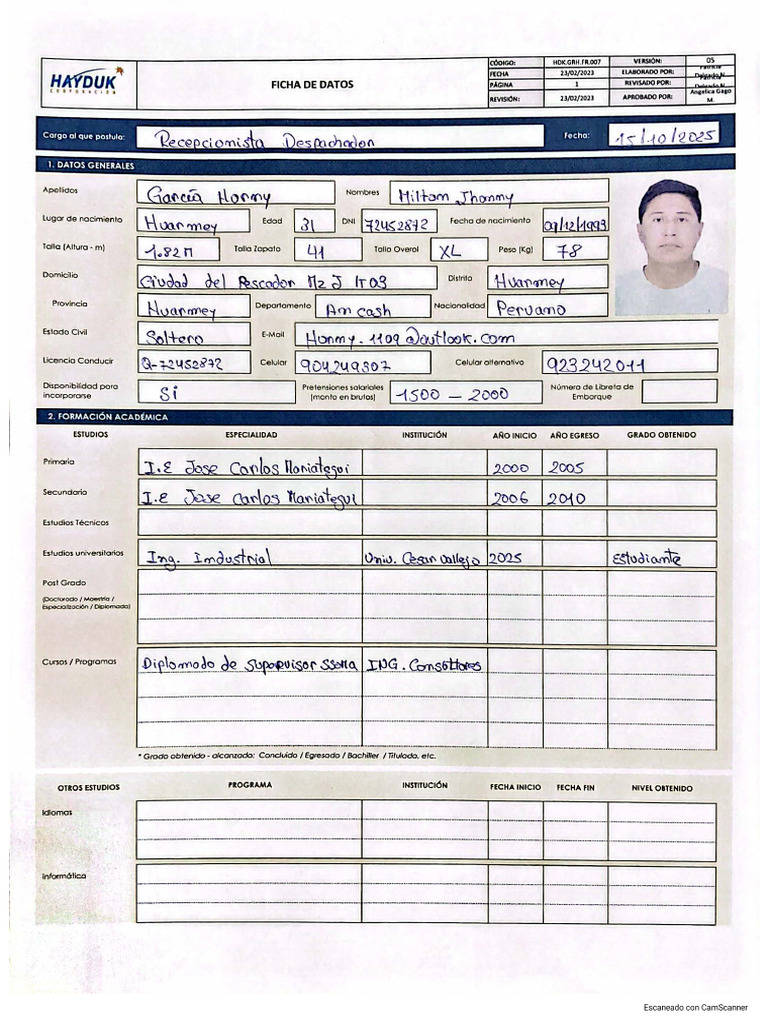 HAYDUK
CORPORACIÓN
FICHA DE DATOS
CÓDIGO: HDK.GRH.FR.007 VERSIÓN: 05
FECHA 23/02/2023 ELABORADO POR: Patricia Delgado N.
PÁGINA 1 REVISADO POR: Patricia Delgado N.
REVISIÓN: 23/02/2023 APROBADO POR: Angelica Gago M.
Cargo al que postula: Recepcionista Despachador Fecha: 15/10/2025
1. DATOS GENERALES
Apellidos García Honmy Nombres Miltom Jhonmy
Lugar de nacimiento Huarmey Edad 31 DNI 72452872 Fecha de nacimiento 09/12/1993
Talla (Altura - m) 1.82 M Talla Zapato 41 Talla Overol XL Peso (Kg) 78
Domicilio Ciudad del Pescador Mz J lt 03 Distrito Huarmey
Provincia Huarmey Departamento Ancash Nacionalidad Peruano
Estado Civil Soltero E-Mail Honmy.1109@outlook.com
Licencia Conducir Q-72452872 Celular 904249307 Celular alternativo 923242011
Disponibilidad para incorporarse Si Pretensiones salariales (monto en brutos) 1500 - 2000 Número de Libreta de Embarque
2. FORMACIÓN ACADÉMICA
ESTUDIOS ESPECIALIDAD INSTITUCIÓN AÑO INICIO AÑO EGRESO GRADO OBTENIDO
Primaria I.E Jose Carlos Mariategui 2000 2005
Secundaria I.E Jose Carlos Mariategui 2006 2010
Estudios Técnicos
Estudios universitarios Ing. Industrial Univ. Cesar Vallejo 2025 Estudiante
Post Grado
(Doctorado / Maestría /
Especialización / Diplomado)
Cursos / Programas Diplomado de Supervisor SSOMA ING. Consultores
* Grado obtenido - alcanzado: Concluido / Egresado / Bachiller / Titulado, etc.
OTROS ESTUDIOS PROGRAMA INSTITUCIÓN FECHA INICIO FECHA FIN NIVEL OBTENIDO
Idiomas
Informática
Escaneado con CamScanner